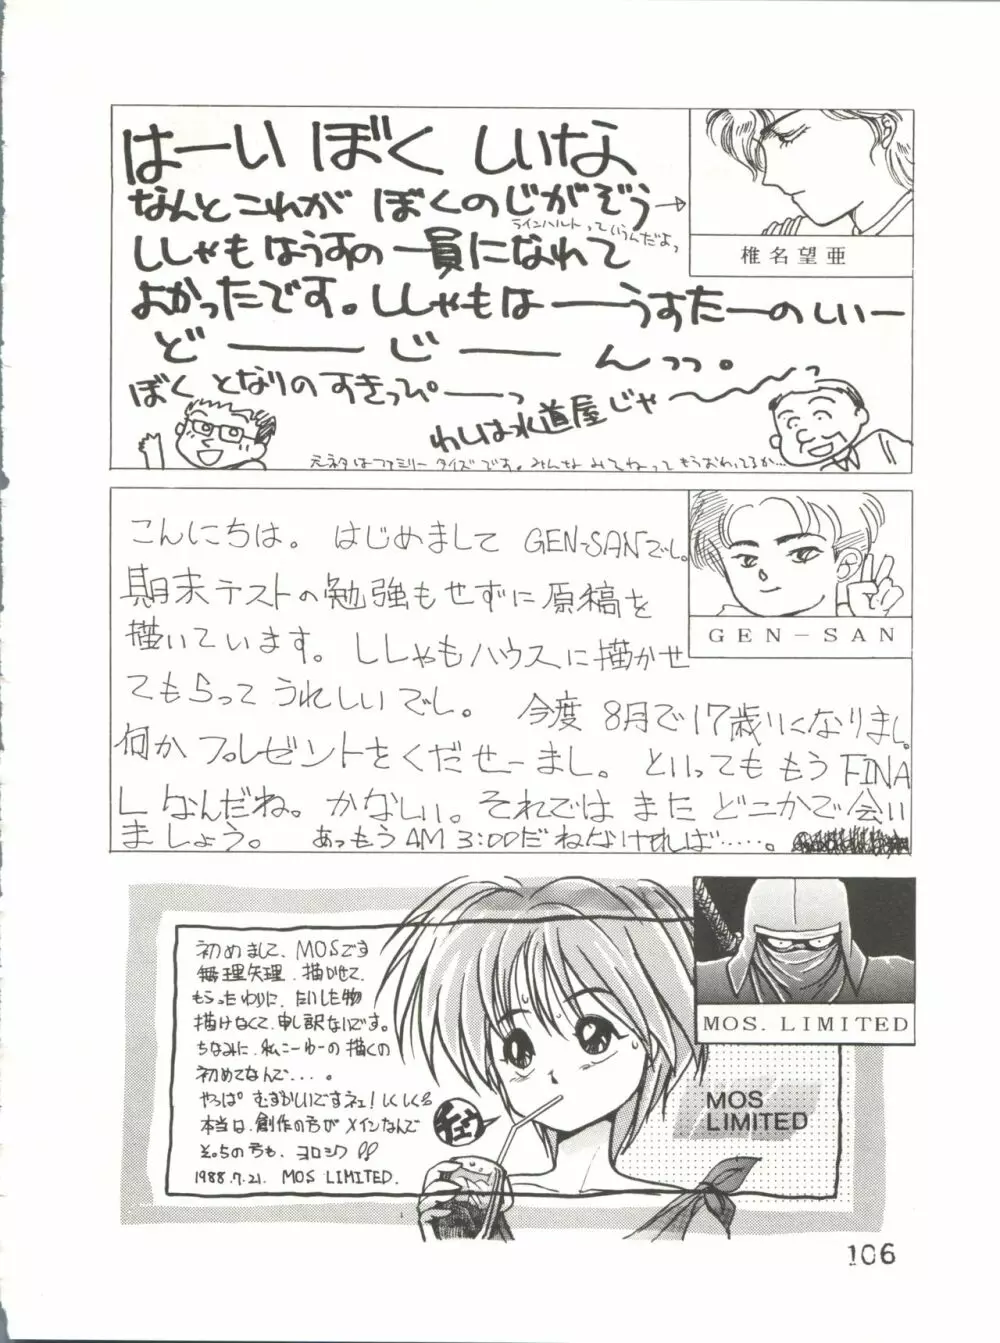 はーい ぼく しいな
なんとこれが ぼくのじがぞう→
ラインハルトっていうんだよっ
ししゃもはうすの一員になれて
よかったです。ししゃもは――うすたーのしいー
ど――じ――んっっ。
ぼく となりのすきっぴ――っ
わしは水道屋じゃ～～っ
元ネタはファミリータイズです。みんなみてねってもうおわってるか…
椎名望亜
こんにちは。はじめまして GEN-SANでし。
期末テストの勉強もせずに原稿を
描いています。ししゃもハウスに描かせ
てもらって うれしいでし。 今度 8月で17歳にになりまし。
何か プレゼントをくだせーまし。といってももうFINA
Lなんだね。かなしい。それでは また どこかで会い
ましょう。 あっもうAM 3:00だ ねなければ……。
GEN-SAN
初めまして、MOSです
無理矢理、描かせて、
もらったわりに、たいした物
描けなくて、申し訳ないです。
ちなみに、私こーゆーの描くの
初めてなんで....。
やっぱ むずかしいですネェ!しくしく
本当は、創作の方が メインなんで
そっちの方も、ヨロシク
1988.7.21. MOS LIMITED.
MOS. LIMITED
MOS
LIMITED
106